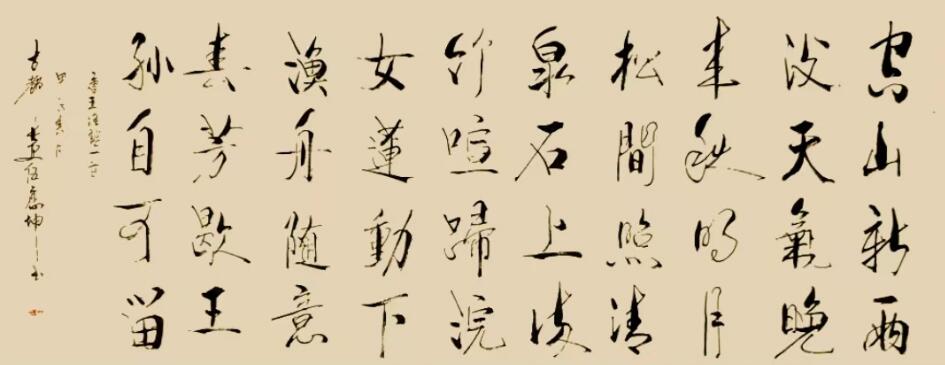 空山新雨
後天氣晚
来秋明月
松間照清
泉石上流
竹喧歸浣
女蓮動下
漁舟随意
春芳歇王
孙自可留
王維詩一首
古都